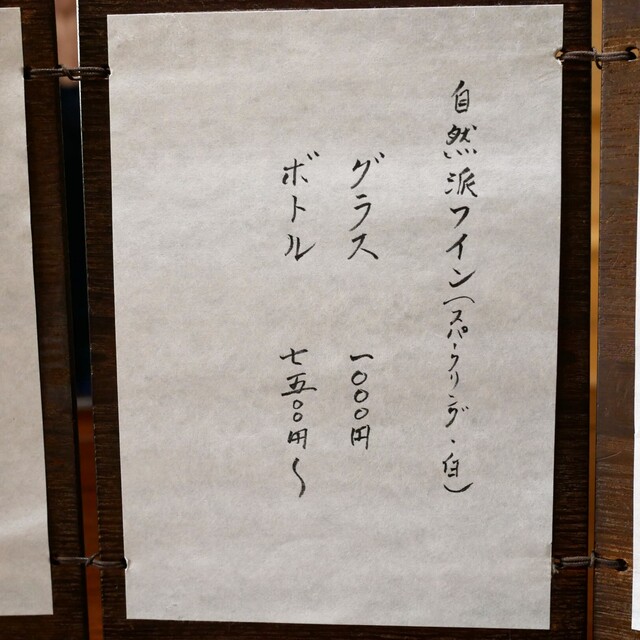 自然派ワイン(スパークリング・白)
グラス 一〇〇〇円
ボトル 七五〇〇円〜